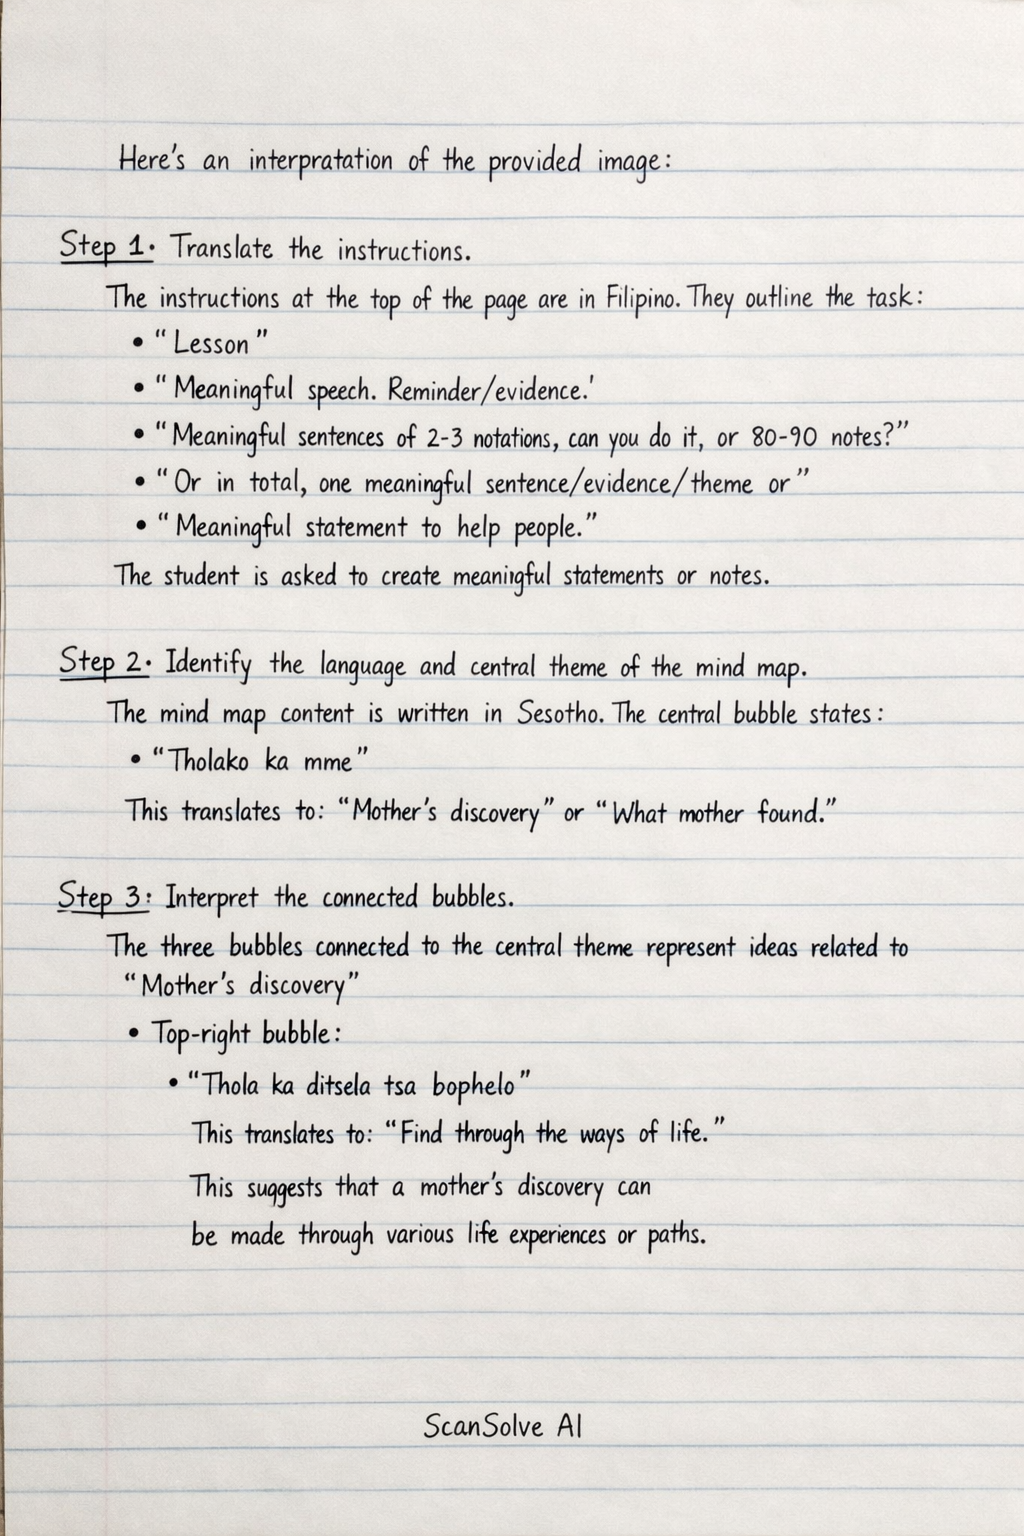 Here's an interpratation of the provided image:
Step 1. Translate the instructions.
The instructions at the top of the page are in Filipino. They outline the task:
• "Lesson"
• "Meaningful speech. Reminder/evidence.'
• "Meaningful sentences of 2-3 notations, can you do it, or 80-90 notes?"
• "Or in total, one meaningful sentence/evidence/theme or"
• "Meaningful statement to help people."
The student is asked to create meaningful statements or notes.
Step 2. Identify the language and central theme of the mind map.
The mind map content is written in Sesotho. The central bubble states:
• "Tholako ka mme"
This translates to: "Mother's discovery" or "What mother found."
Step 3: Interpret the connected bubbles.
The three bubbles connected to the central theme represent ideas related to
"Mother's discovery"
• Top-right bubble:
• "Thola ka ditsela tsa bophelo"
This translates to: "Find through the ways of life."
This suggests that a mother's discovery can
be made through various life experiences or paths.
ScanSolve AI